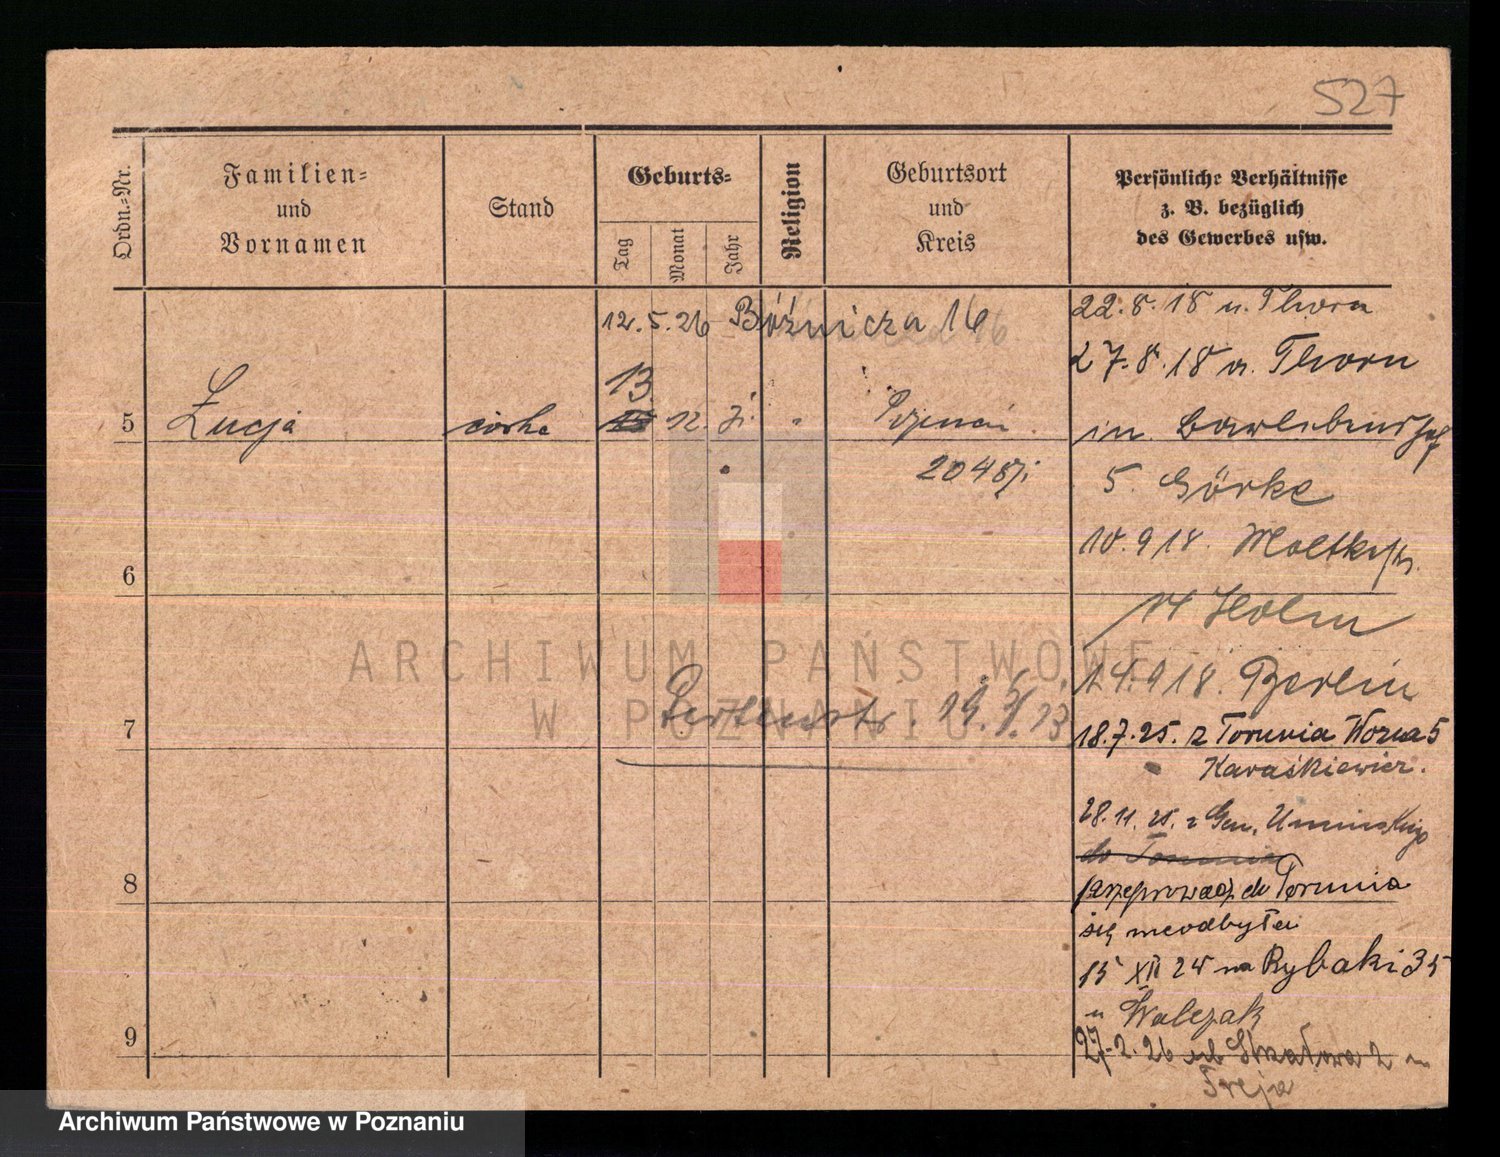 527
Ordn.-Nr.
Familien-
und
Vornamen
Stand
Geburts-
Tag
Monat
Jahr
Religion
Geburtsort
und
Kreis
Persönliche Verhältnisse
z. B. bezüglich
des Gewerbes usw.
12.5.26 Bóźnicza 16
22.8.18 n. Thorn
27.8.18 a. Thorn
13
5 Łucja córka 12. Poznań
in
2048
5. Görke
6
10.9.18. Moltkestr.
14 Holm
14.9.18. Berlin
7
18.7.25. z Torunia Wozna 5
Karaśkiewicz.
28.11.25. z Gen. Umińskiego
do Torunia
8
przeprowadz do Torunia
się nieodbyła
15 XII 25 na Rybaki 35
u Walczak
9
27.2.26 Strzałowa 2
Freja
ARCHIWUM PAŃSTWOWE
W POZNANIU
Archiwum Państwowe w Poznaniu